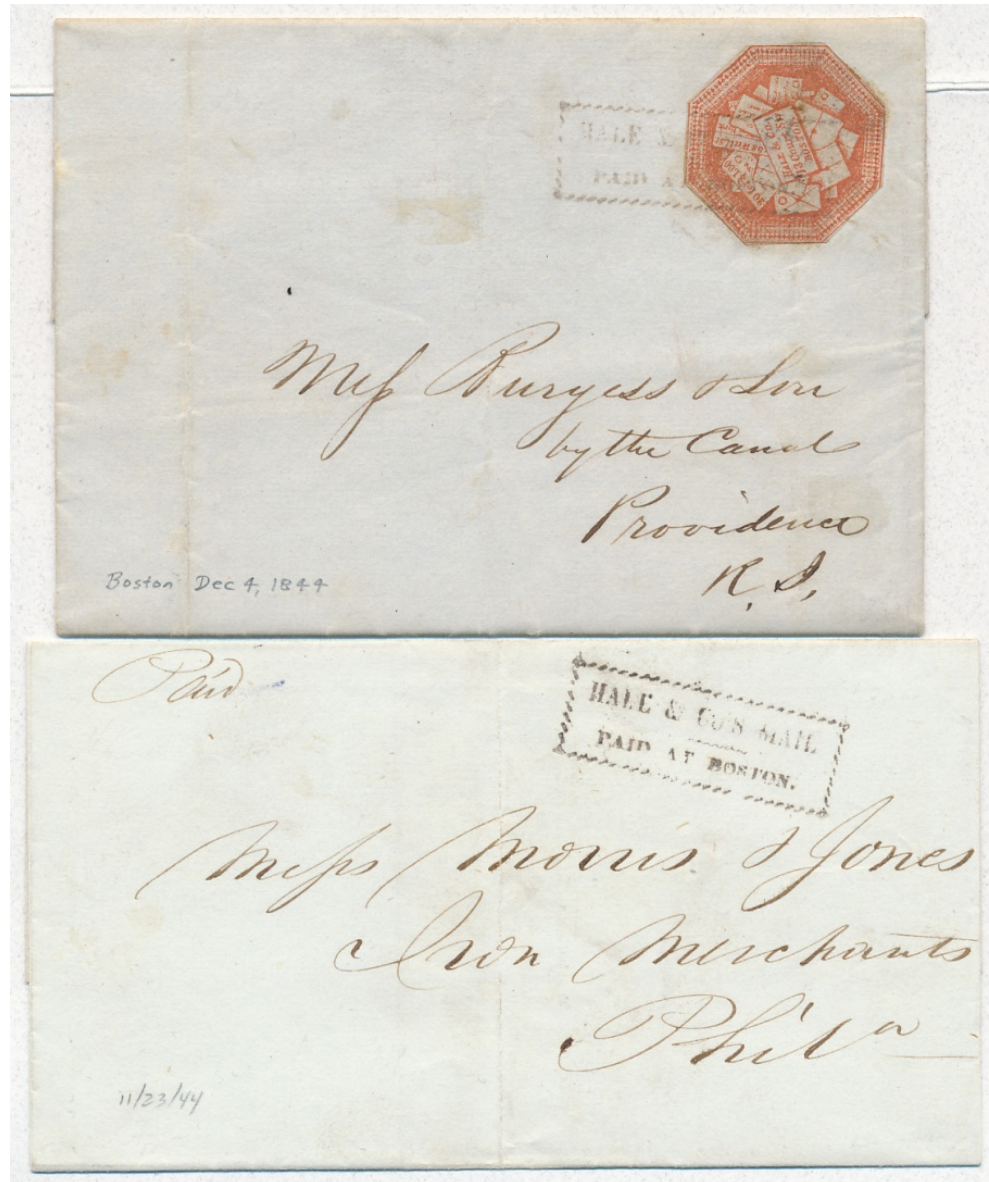 HALE &
PAID A
HALE & Co.
13 COURT St.
BOSTON.
20 for $1.00
Mess Burgess & Son
by the Canal
Providence
R. I.
Boston Dec 4, 1844
Paid
HALE & CO'S MAIL
PAID AT BOSTON.
Mess Morris & Jones
Iron Merchants
Phila
11/23/44